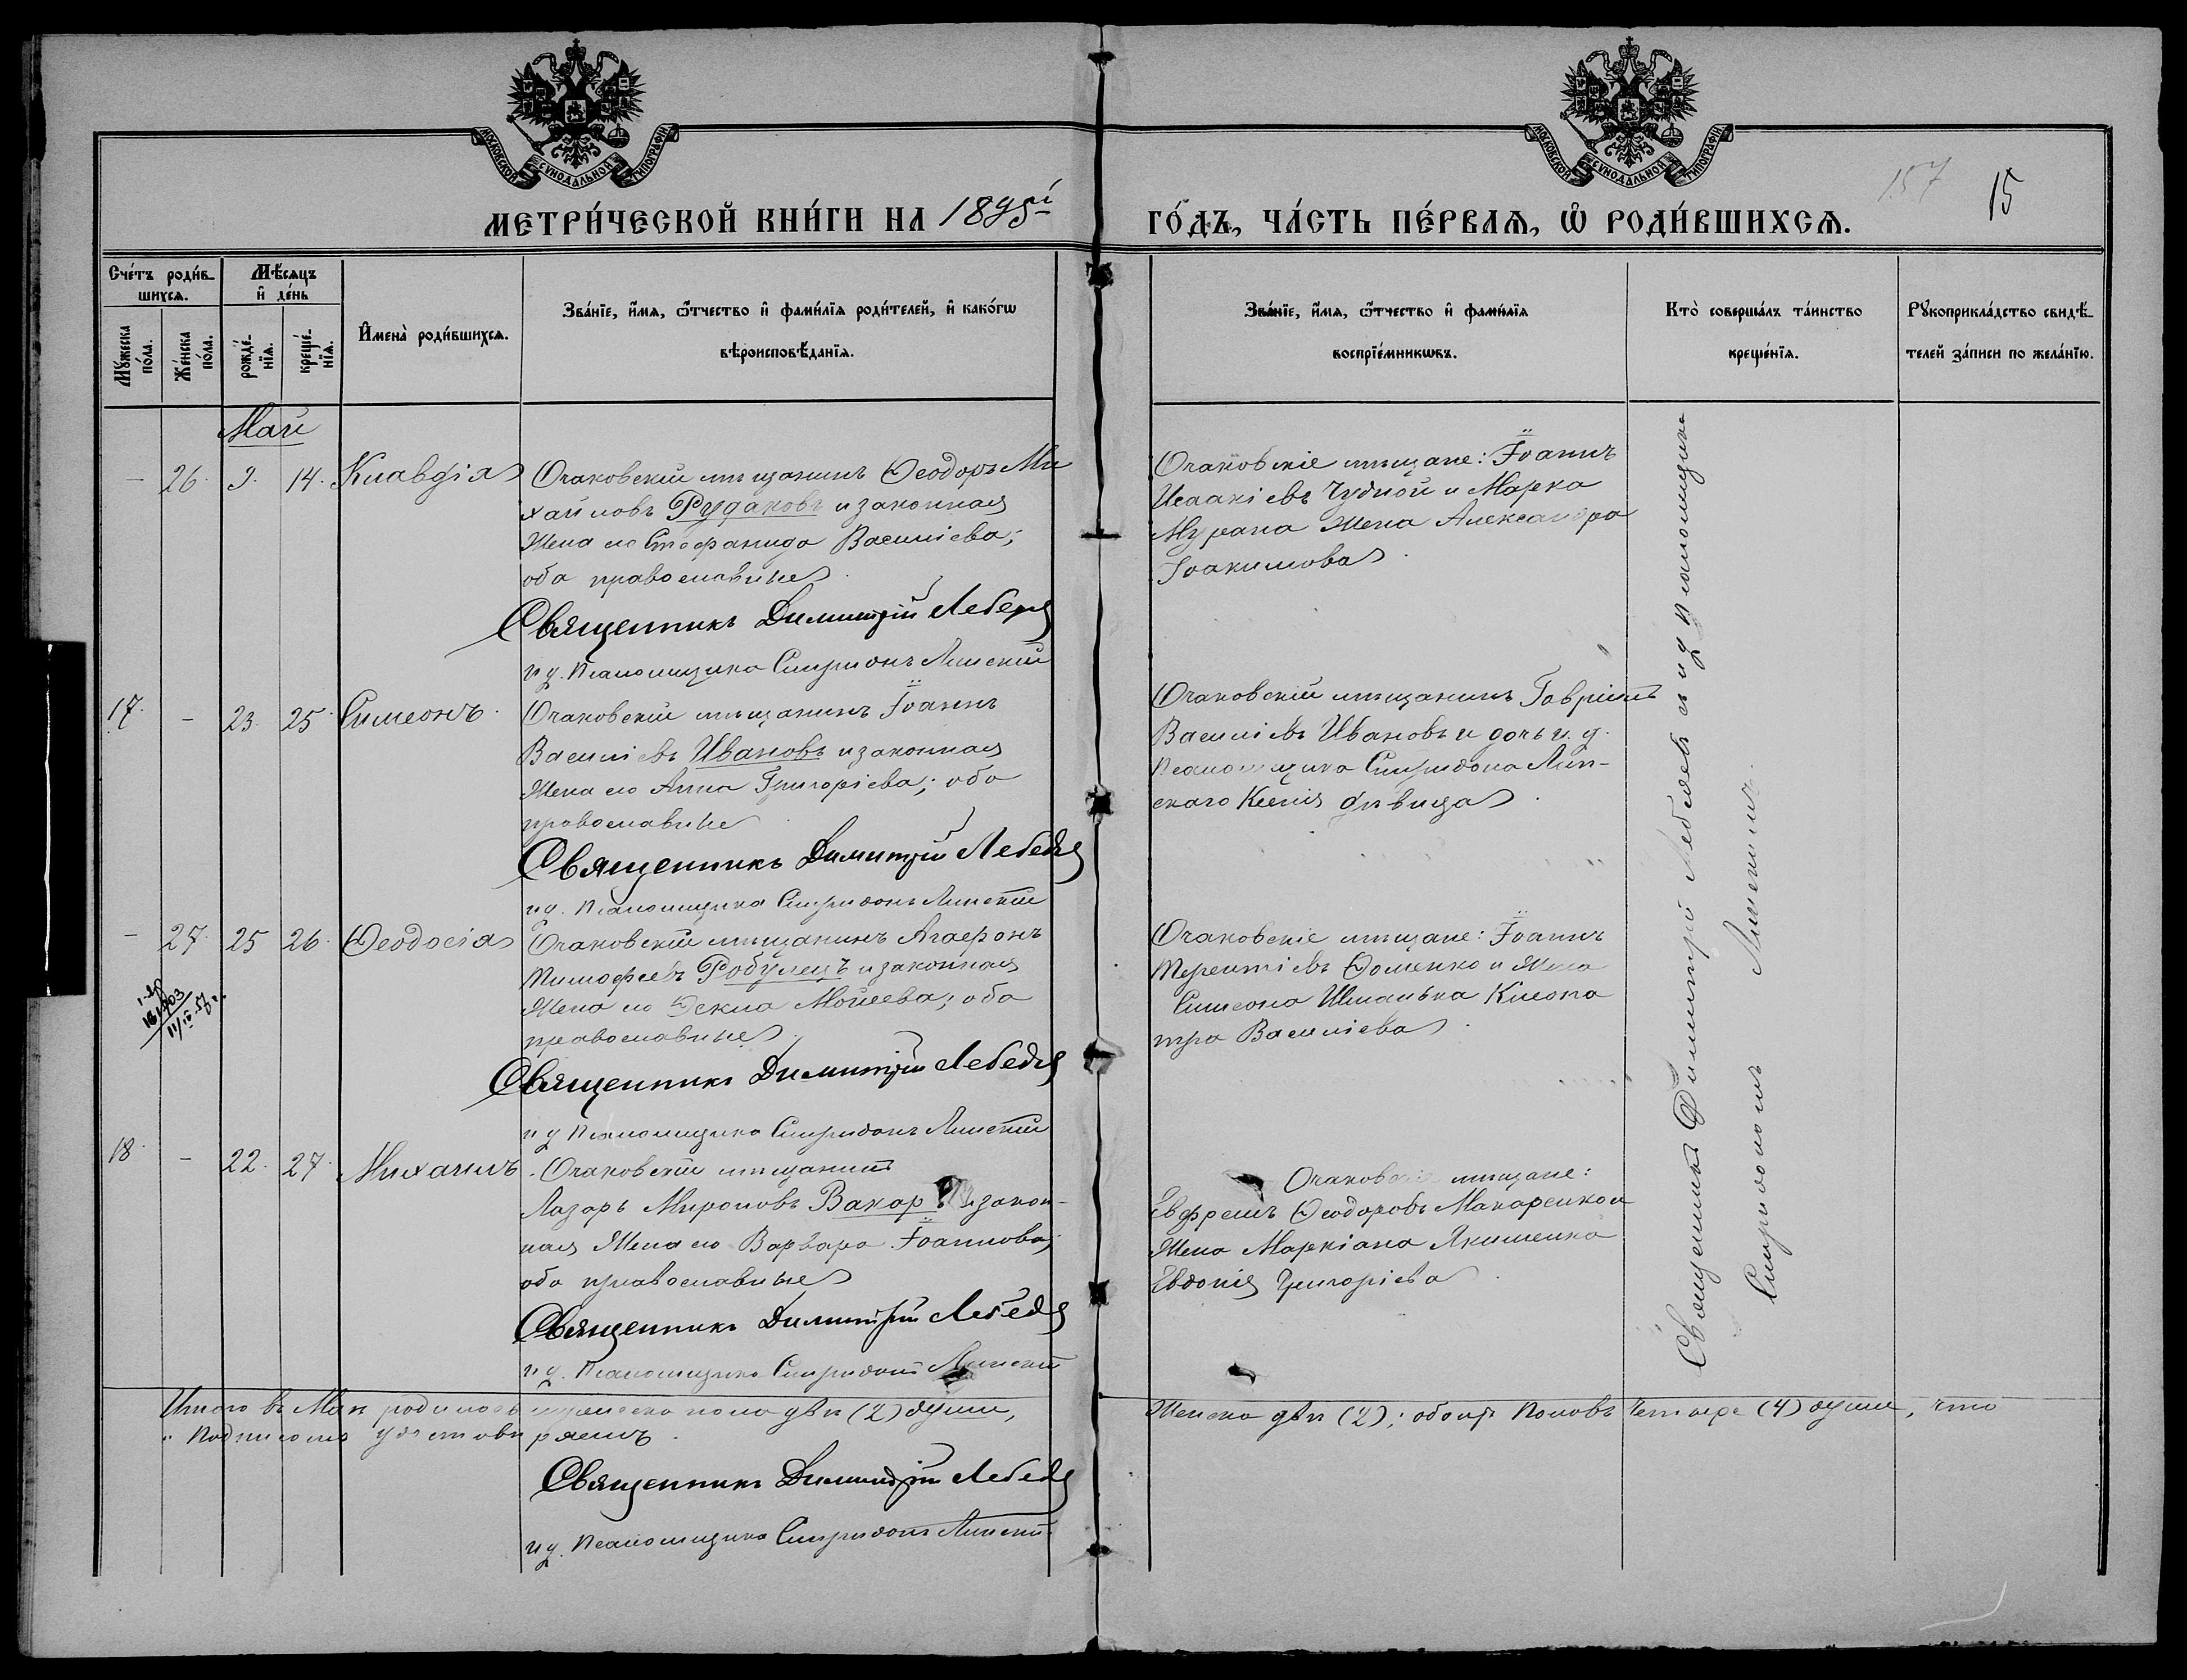 МОСКОВСКОЙ СѴНОДАЛЬНОЙ ТИПОГРАФІИ
МОСКОВСКОЙ СѴНОДАЛЬНОЙ ТИПОГРАФІИ
157 15
МЕТРИ́ЧЕСКОЙ КНИ́ГИ НА 1895й
ГО́ДЪ, ЧА́СТЬ ПЕ́РВАѦ, Ѿ РОДИ́ВШИХСѦ.
Сче́тъ роди́в-
шихсѧ.
Мꙋ́жеска по́ла.
Же́нска по́ла.
Мѣ́сѧцъ
и҆ де́нь
рожде́-
нїѧ.
креще́-
нїѧ.
И҆мена̀ роди́вшихсѧ.
Зва́нїе, и҆́мѧ, ѻ҆́тчество и҆ фами́лїѧ роди́телей, и҆ како́гѡ
вѣроисповѣ́данїѧ.
Зва́нїе, и҆́мѧ, ѻ҆́тчество и҆ фами́лїѧ
воспрїе́мникѡвъ.
Кто̀ соверша́лъ та́инство
креще́нїѧ.
Рꙋкоприкла́дство свидѣ́-
телей за́писи по жела́нїю.
Май
– 26. 9. 14. Клавдія
Очаковскій мѣщанинъ Ѳеодоръ Ми
хайловъ Рудаковъ и законная
жена его Стефанида Василіева;
оба православные.
Священникъ Димитрій Лебедь
и д. Псаломщика Спиридонъ Линскій
Очаковскіе мѣщане: Іоаннъ
Исаакіевъ Чудной и Марка
Мурана жена Александра
Іоакимова.
17. – 23. 25. Симеонъ.
Очаковскій мѣщанинъ Іоаннъ
Василіевъ Ивановъ и законная
жена его Анна Григоріева; оба
православные
Священникъ Димитрій Лебедь
и д. Псаломщика Спиридонъ Линскій
Очаковскій мѣщанинъ Гавріилъ
Василіевъ Ивановъ и дочь и. д.
Псаломщика Спиридона Лин-
скаго Ксенія дѣвица.
– 27. 25 26. Ѳеодосія
Очаковскій мѣщанинъ Агаѳонъ
Тимофеевъ Робулецъ и законная
жена его Ѳекла Моѵсеева; оба
православные.
Священникъ Димитрій Лебедь
и д Псаломщика Спиридонъ Линскій
Очаковскіе мѣщане: Іоаннъ
Терентіевъ Ѳоменко и жена
Симеона Шпанька Клеопа
тра Василіева.
18. – 22. 27. Михаилъ
Очаковскій мѣщанинъ
Лазарь Мироновъ Вакаръ и закон-
ная жена его Варвара Іоаннова;
оба православные
Священникъ Димитрій Лебедь
и д. Псаломщика Спиридонъ Линскій
Очаковскіе мѣщане:
Евфремъ Ѳеодоровъ Макаренко и
жена Маркіана Якименка
Евдокія Григоріева.
Священникъ Димитрій Лебедь съ и д Псаломщика
Спиридономъ Линскимъ.
Итого въ Маѣ родилось мужеска пола двѣ (2) души,
женска двѣ (2); обоихъ половъ четыре (4) души, что
и подписомъ удостовѣряемъ.
Священникъ Димитрій Лебедь
и д. Псаломщика Спиридонъ Линскій